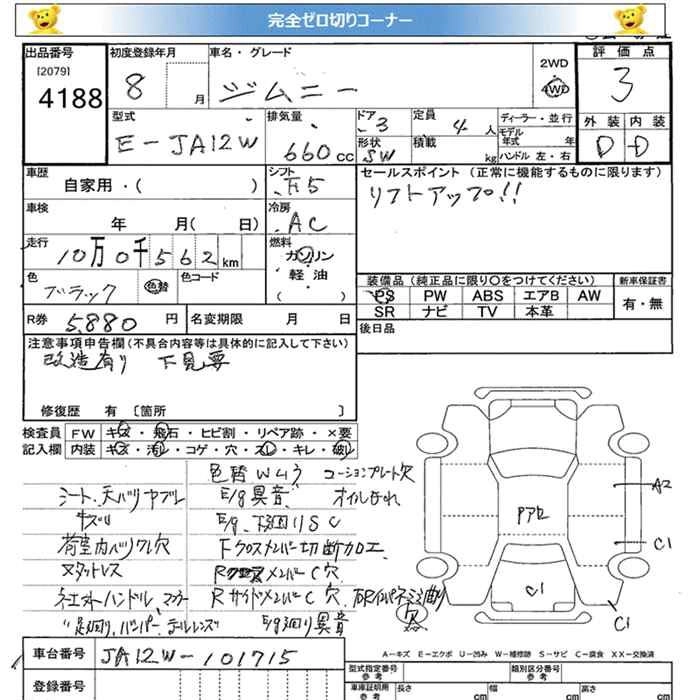 完全ゼロ切りコーナー
出品番号 初度登録年月 車名・グレード 評価点
[2079]
4188 8 月 ジムニー 2WD 4WD 3
型式 排気量 ドア 定員 ディーラー・並行 外装 内装
E-JA12W 660cc 3 4人 モデル年式 年 D D
形状 SW 積載 kg ハンドル 左・右
車歴 シフト セールスポイント (正常に機能するものに限ります)
自家用・( ) F5 リフトアップ!!
車検 冷房
年 月( 日) AC
走行 燃料
10万0千562km ガソリン
軽・油
( )
色 色コード 装備品 (純正品に限り○をつけてください) 新車保証書
ブラック 色替 PS PW ABS エアB AW 有・無
SR ナビ TV 本革
R券 5,880円 名変期限 月 日 後日品
注意事項申告欄 (不具合内容等は具体的に記入して下さい)
改造有り 下見要
修復歴 有 〔箇所 〕
検査員 FW キズ・飛石・ヒビ割・リペア跡・×要
記入欄 内装 キズ・汚レ・コゲ・穴・スレ・キレ・破レ
色替Wムラ コーションプレート欠
シート、天バリヤブレ E/g異音 オイルもれ
キズ E/g、下廻りSC
荷室内バリワレ穴 Fクロスメンバー切断加工
ヌタットレス R メンバーC穴
社外ハンドル、マフラー RサイドメンバーC穴
足廻り、バンパー、テールレンズ E/g廻り異音 欠
A2
Pアロ
C1
C1
C1
車台番号 JA12W-101715
A-キズ E-エクボ U-凹み W-補修跡 S-サビ C-腐食 XX-交換済
登録番号 型式指定番号 参考 類別区分番号 参考
車庫証明用 参考 長さ cm 幅 cm 高さ cm